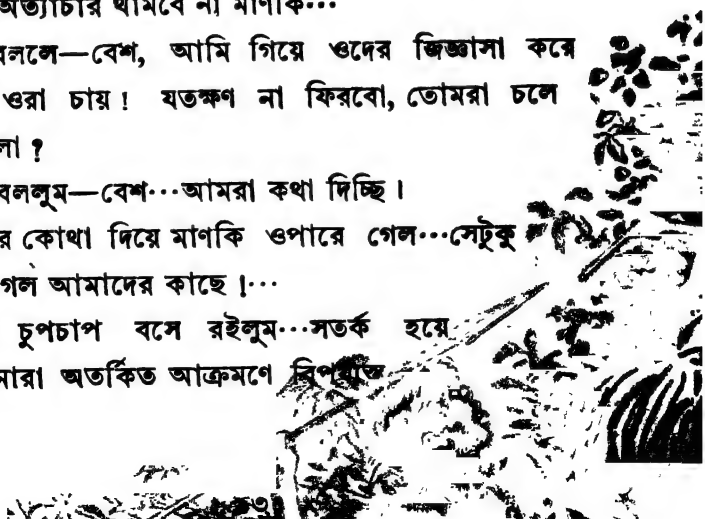 অত্যাচার থামবে না মাণকি…
বললে—বেশ, আমি গিয়ে ওদের জিজ্ঞাসা করে
ওরা চায়! যতক্ষণ না ফিরবো, তোমরা চলে
না ?
বললুম—বেশ…আমরা কথা দিচ্ছি।
র কোথা দিয়ে মাণকি ওপারে গেল…সেটুকু
গেল আমাদের কাছে !…
চুপচাপ বসে রইলুম…সতর্ক হয়ে
নারা অতর্কিত আক্রমণে বিপর্যস্ত